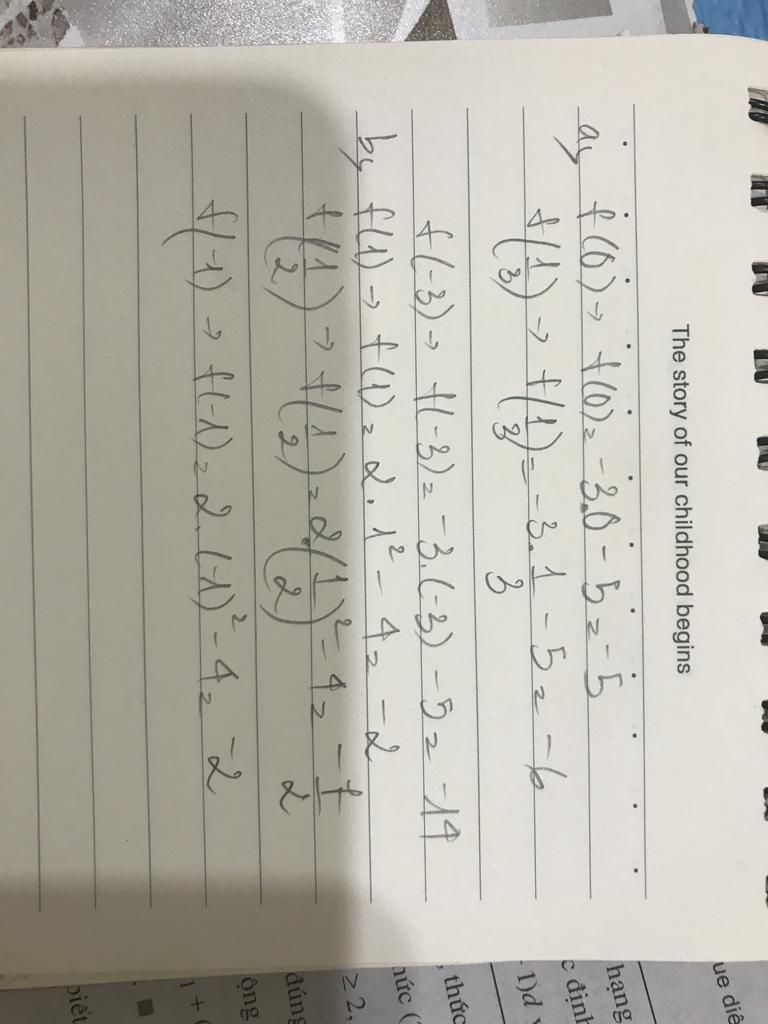 The story of our childhood begins
a, f(0) → f(0) = -3.0 - 5 = -5
f(1/3) → f(1/3) = -3.1/3 - 5 = -6
f(-3) → f(-3) = -3.(-3) - 5 = -14
b, f(1) → f(1) = 2.1² - 4 = -2
f(1/2) → f(1/2) = 2.(1/2)² - 4 = -7/2
f(-1) → f(-1) = 2.(-1)² - 4 = -2
hạng
c định
1)d
, thức
≥ 2,
đúng
ộng
1 +
biết